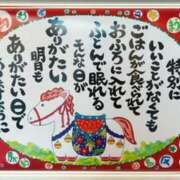 特別に
いいことがなくても
ごはんが食べられて
おふろに入れて
ふとんで眠れる
そんな日が
あがたい
明日も
ありがたい日で